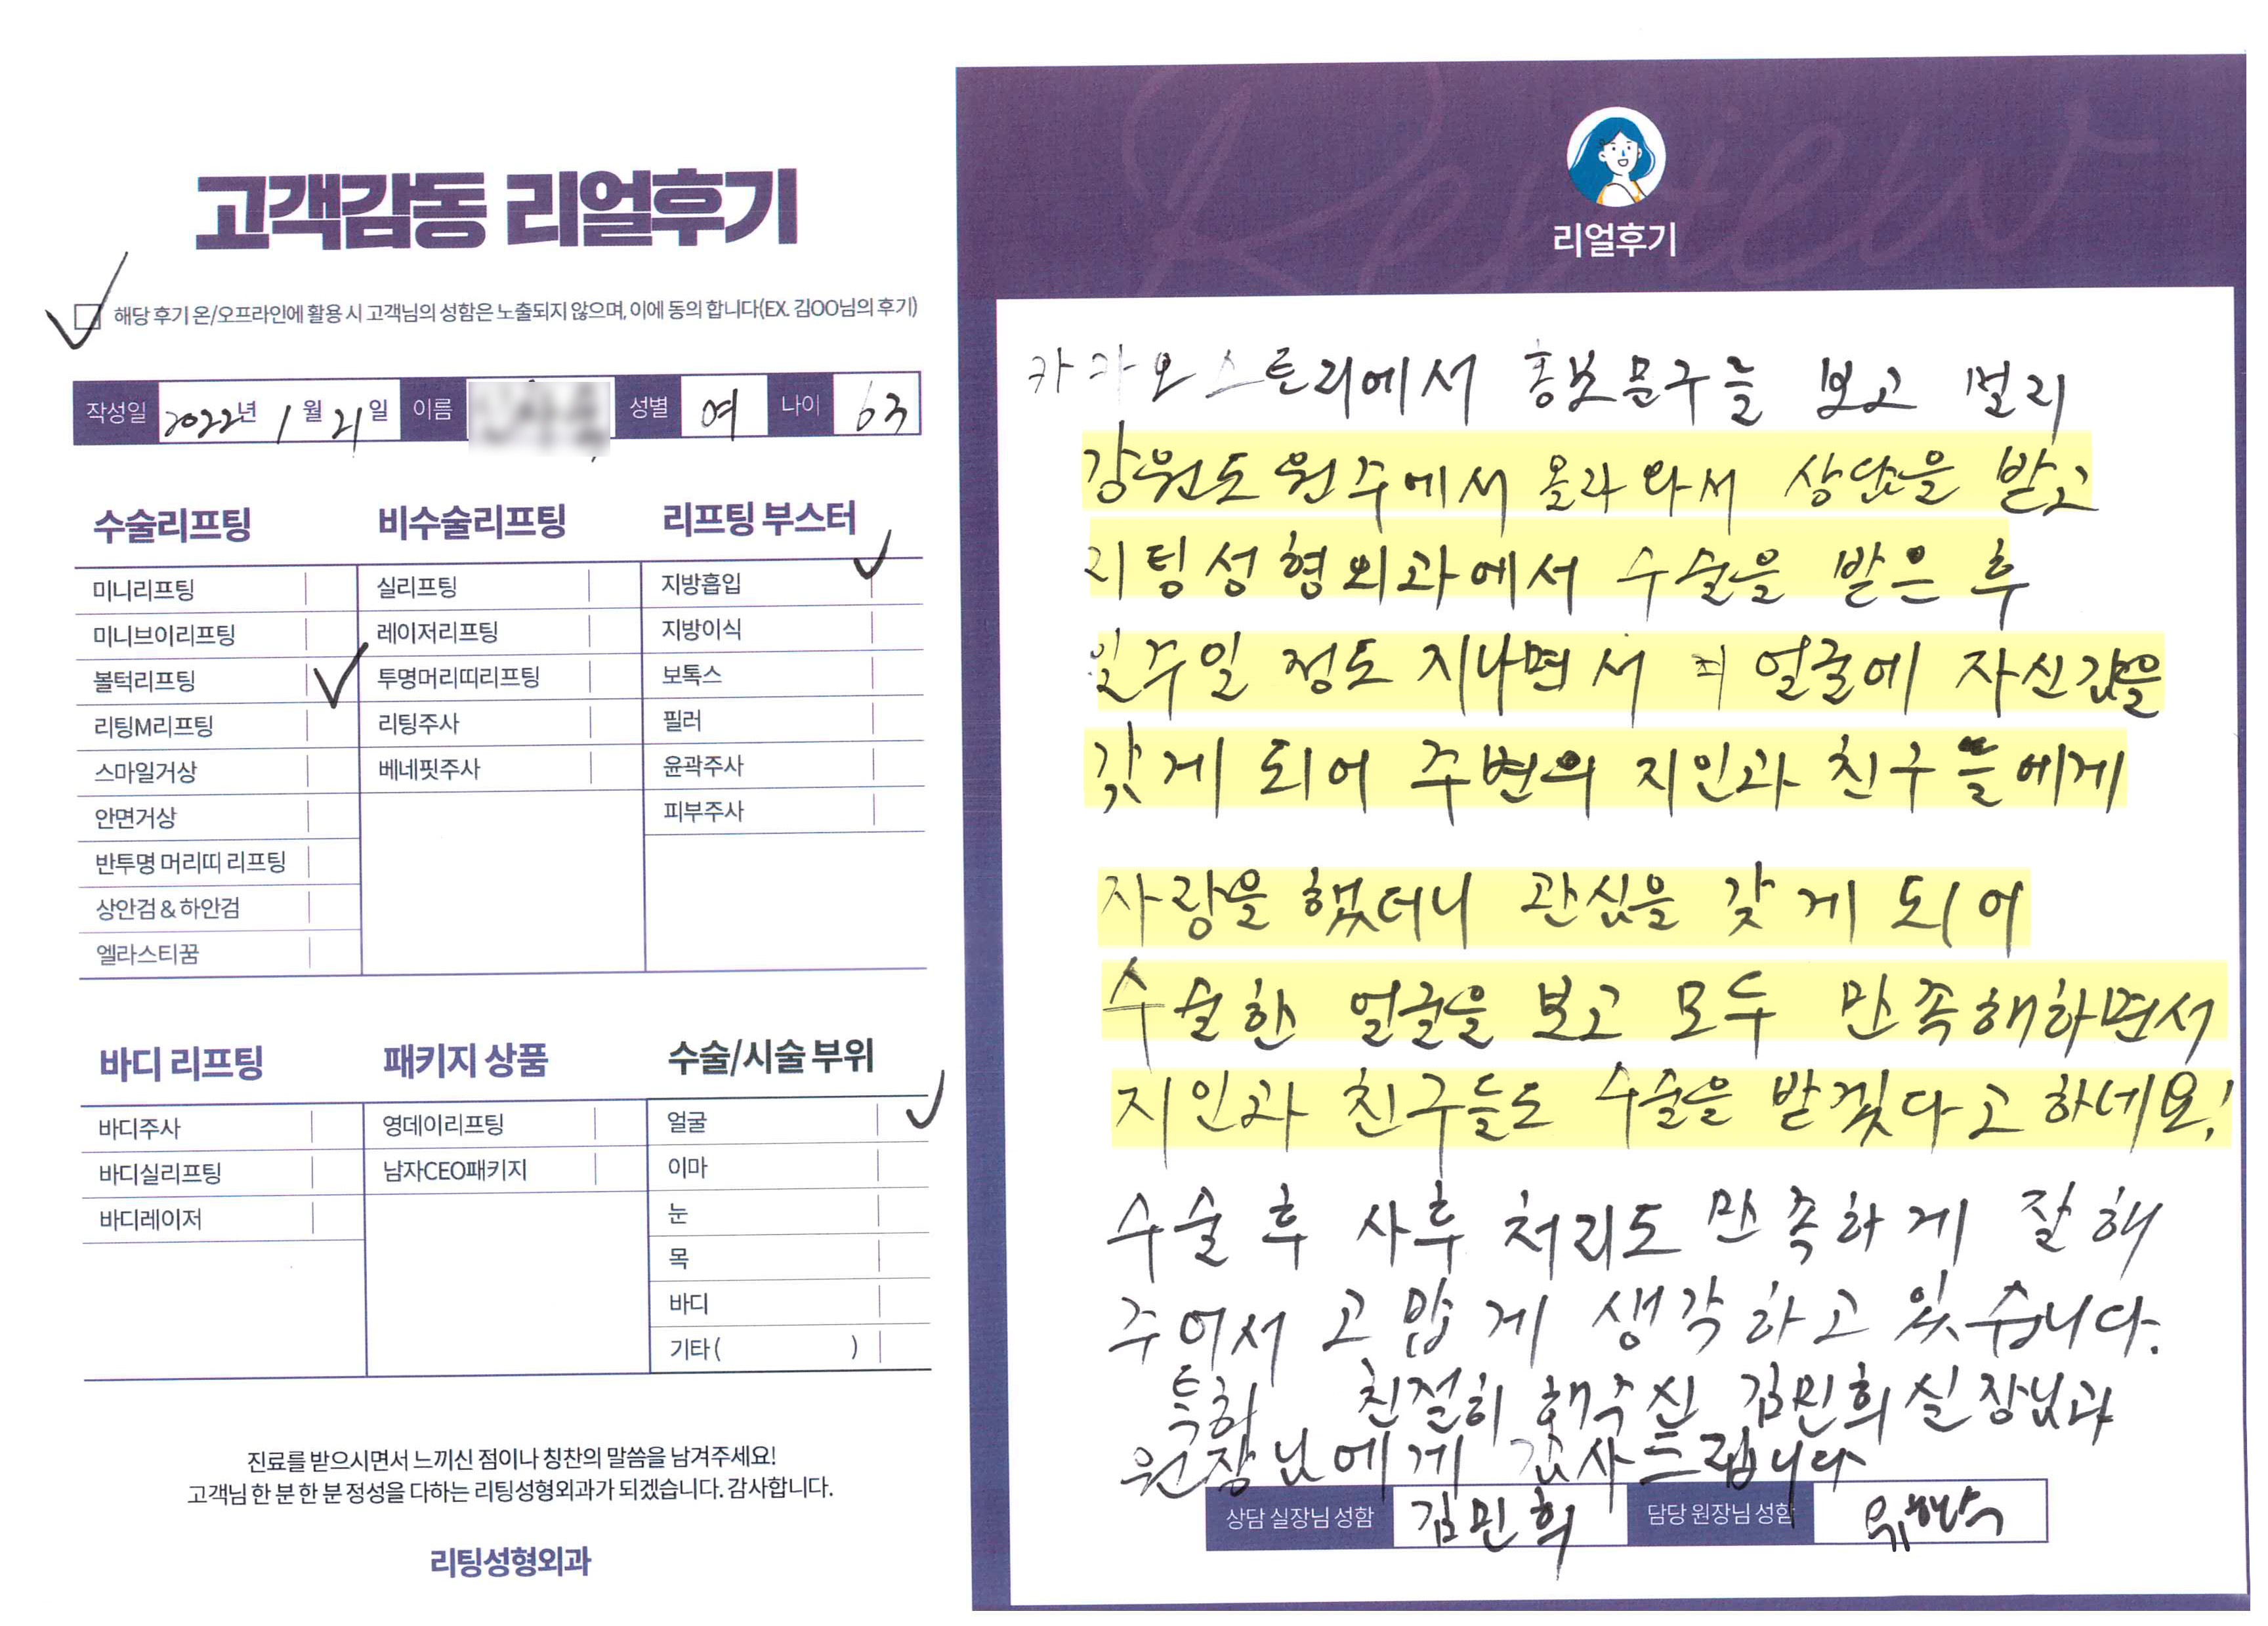 고객감동 리얼후기
해당 후기 온/오프라인에 활용 시 고객님의 성함은 노출되지 않으며, 이에 동의 합니다(EX. 김OO님의 후기)
작성일 2022년 1월 21일 이름 성별 여 나이 63
수술리프팅
미니리프팅
미니브이리프팅
볼턱리프팅
리팅M리프팅
스마일거상
안면거상
반투명 머리띠 리프팅
상안검 & 하안검
엘라스티꿈
비수술리프팅
실리프팅
레이저리프팅
투명머리띠리프팅
리팅주사
베네핏주사
리프팅 부스터
지방흡입
지방이식
보톡스
필러
윤곽주사
피부주사
바디 리프팅
바디주사
바디실리프팅
바디레이저
패키지 상품
영데이리프팅
남자CEO패키지
수술/시술 부위
얼굴
이마
눈
목
바디
기타 ( )
진료를 받으시면서 느끼신 점이나 칭찬의 말씀을 남겨주세요!
고객님 한 분 한 분 정성을 다하는 리팅성형외과가 되겠습니다. 감사합니다.
리팅성형외과
Review
리얼후기
카카오스토리에서 홍보문구를 보고 멀리
강원도 원주에서 올라와서 상담을 받고
리팅성형외과에서 수술을 받은 후
일주일 정도 지나면서 얼굴에 자신감을
갖게 되어 주변의 지인과 친구들에게
자랑을 했더니 관심을 갖게 되어
수술한 얼굴을 보고 모두 만족해하면서
지인과 친구들도 수술을 받겠다고 하네요!
수술 후 사후 처리도 만족하게 잘 해
주어서 고맙게 생각하고 있습니다.
특히 친절히 해주신 김민희 실장님과
원장님에게 감사드립니다
상담 실장님 성함 김민희 담당 원장님 성함